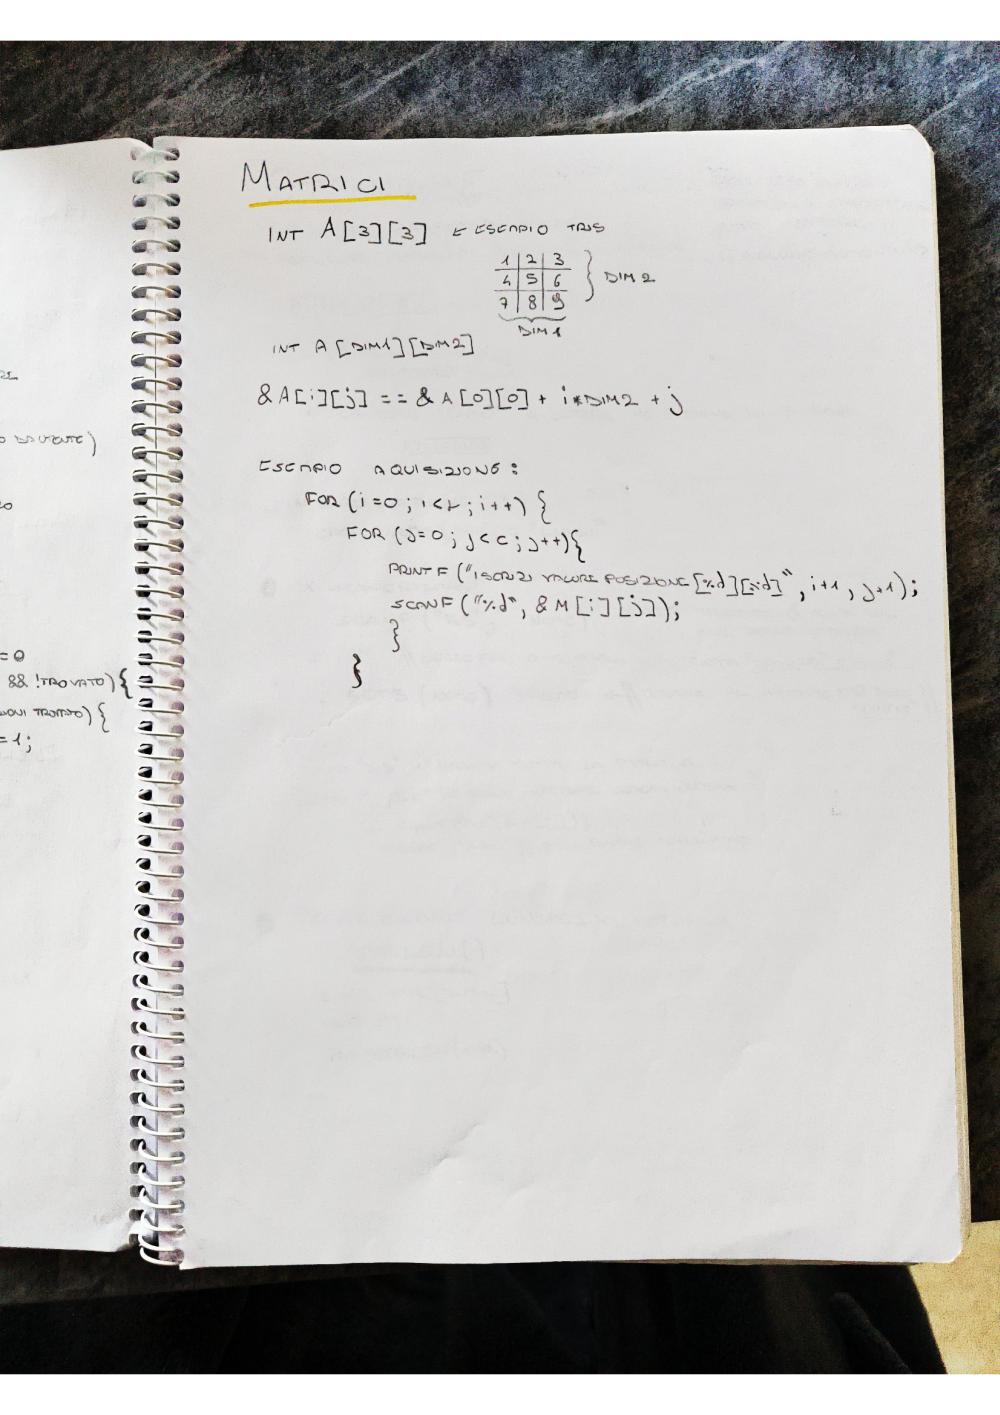 MATRICI
INT A[3][3] ← ESEMPIO TRIS
1 2 3
4 5 6
7 8 9
} DIM 2
DIM 1
INT A [DIM1][DIM2]
&A[i][j] == & A[0][0] + i*DIM2 + j
ESEMPIO AQUISIZIONE:
FOR (i=0; i<r; i++) {
FOR (j=0; j<c; j++){
PRINTF ("ISCRIZI VALORE POSIZIONE[%d][%d]", i+1, j+1);
SCANF ("%d", & M[i][j]);
}
}
= 0
&& !TROVATO) {
TROVATO) {
=1;